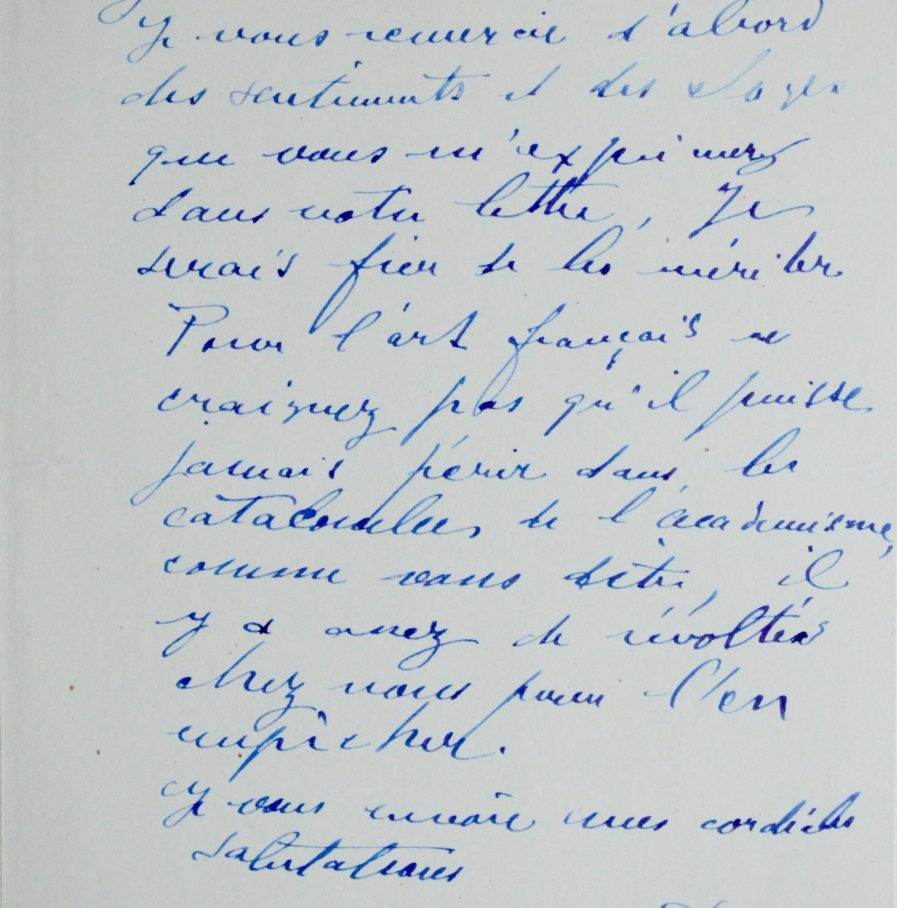 Je vous remercie d'abord
des sentiments et des eloges
que vous m'exprimez
dans votre lettre, Je
serais fier de les mériter
Pour l'art français ne
craignez pas qu'il puisse
jamais périr dans les
catacombes de l'académisme,
comme vous dites, il
y a assez de révoltés
chez nous pour l'en
empêcher.
Je vous envoie mes cordiales
salutations